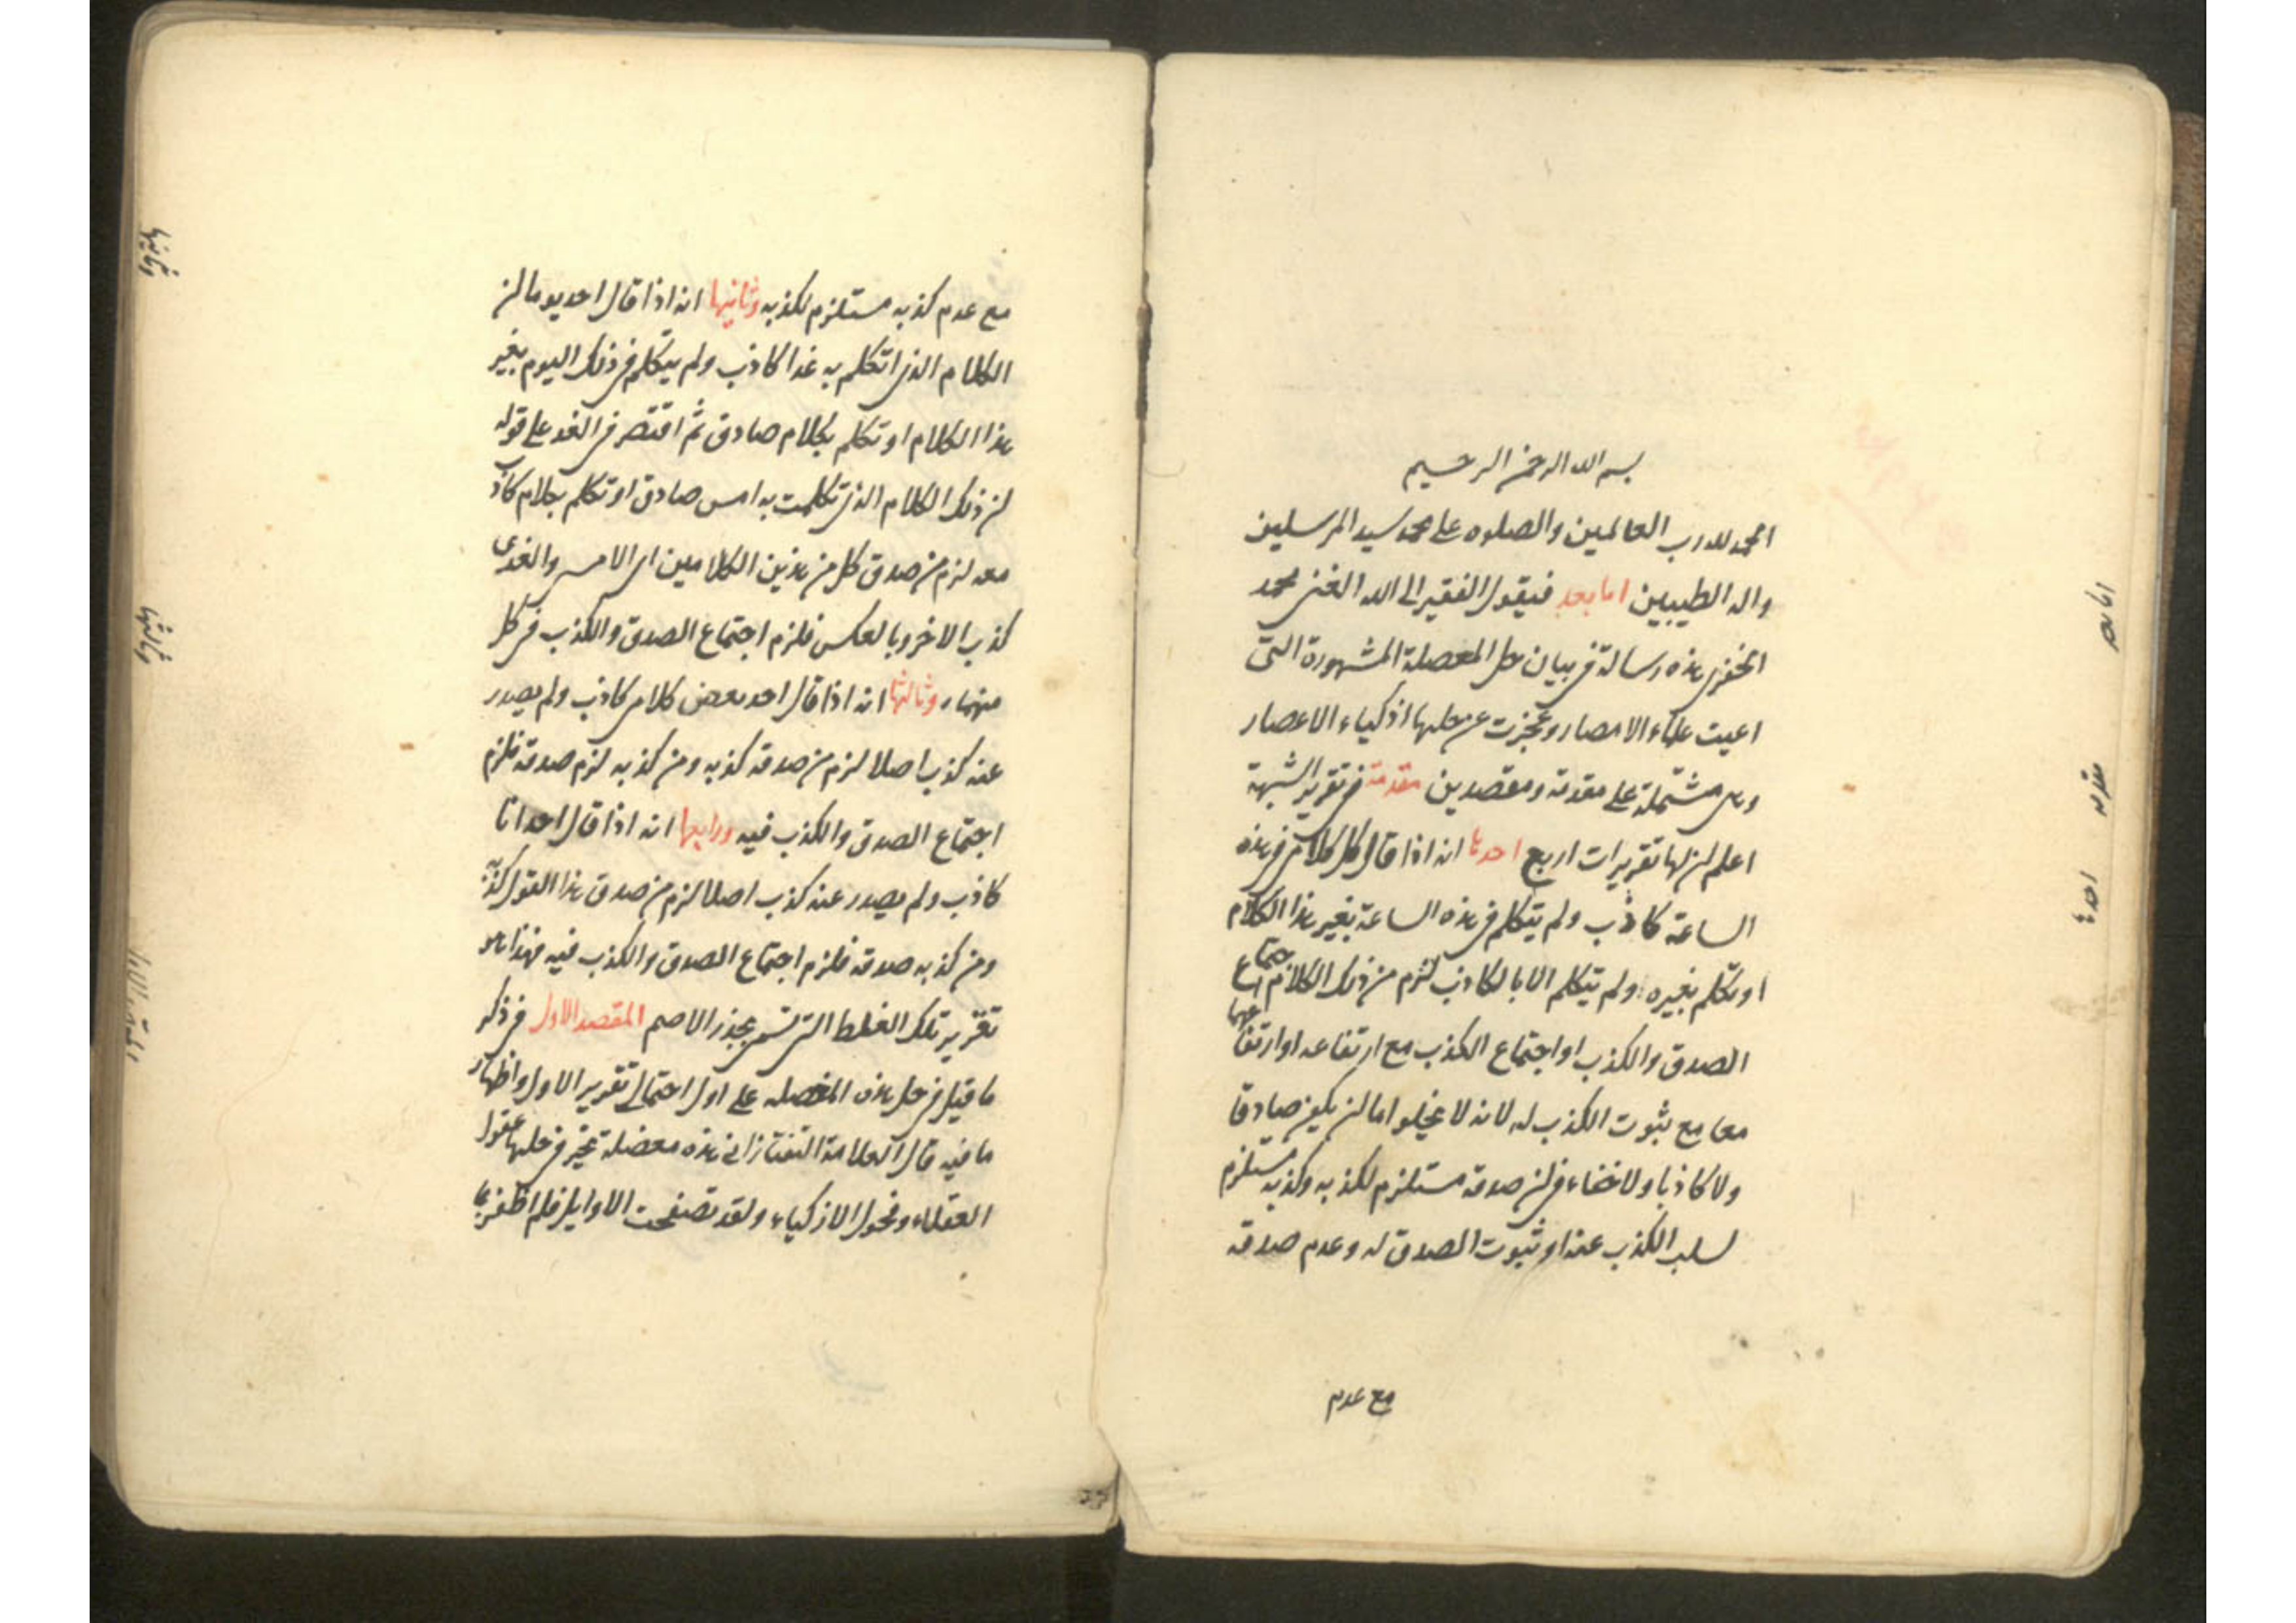 بسم الله الرحمن الرحيم
الحمد لله رب العالمين والصلوه على محمد سيد المرسلين
واله الطيبين اما بعد فيقول الفقير الى الله الغنى محمد
الخفرى هذه رسالة فى بيان حل المعضلة المشهورة التى
اعيت علماء الامصار وعجزت عن حلها اذكياء الاعصار
وهى مشتملة على مقدمة ومقصدين مقدمة فى تقرير الشبهة
اعلم ان لها تقريرات اربع احدها انه اذا قال كل كلامى فى هذه
الساعة كاذب ولم يتكلم فى هذه الساعة بغير هذا الكلام
او تكلم بغيره ولم يتكلم الا بالكاذب لزم من ذلك الكلام اجتماع
الصدق والكذب او اجتماع الكذب مع ارتفاعه او ارتفاعهما
معا مع ثبوت الكذب له لانه لا يخلو اما ان يكون صادقا
ولا كاذبا ولا خفاء فى ان صدقه مستلزم لكذبه وكذبه مستلزم
لسلب الكذب عنه او ثبوت الصدق له وعدم صدقه
مع عدم
اما بعد
مقدمه
احدها
مع عدم كذبه مستلزم لكذبه وثانيها انه اذا قال احد يوما ان
الكلام الذى اتكلم به غدا كاذب ولم يتكلم فى ذلك اليوم بغير
هذا الكلام او تكلم بكلام صادق ثم اقتصر فى الغد على قوله
ان ذلك الكلام الذى تكلمت به امس صادق او تكلم بكلام كاذب
معه لزم من صدق كل من هذين الكلامين اى الامسى والغدى
كذب الاخر وبالعكس فلزم اجتماع الصدق والكذب فى كل
منهما وثالثها انه اذا قال احد بعض كلامى كاذب ولم يصدر
عنه كذب اصلا لزم من صدقه كذبه ومن كذبه لزم صدقه فلزم
اجتماع الصدق والكذب فيه ورابعها انه اذا قال احد انا
كاذب ولم يصدر عنه كذب اصلا لزم من صدق هذا القول كذبه
ومن كذبه صدقه فلزم اجتماع الصدق والكذب فيه فهذا هو
تقرير تلك الغلط التى تسمى بجذر الاصم المقصد الاول فى ذكر
ما قيل فى حل هذه المعضله على اول احتمالى تقرير الاول واظهار
ما فيه قال العلامة التفتازانى هذه معضلة تحير فى حلها عقول
العقلاء وفحول الاذكياء ولقد تصفحت الاوايل فلم اظفر بما
وثانيها
وثالثها